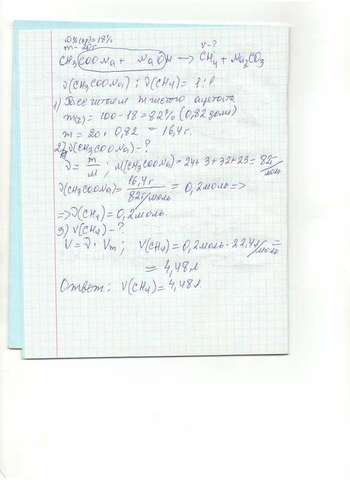 ω%(пр)=18%
m=20г V-?
CH3COONa + NaOH → CH4 + Na2CO3
ν(CH3COONa) : ν(CH4) = 1:1
1) Рассчитали m чистого ацетата
m(2) = 100 - 18 = 82% (0,82 доли)
m = 20 · 0,82 = 16,4 г.
2) ν(CH3COONa) - ?
ν = m/M ; M(CH3COONa) = 24+3+32+23 = 82 г/моль
ν(CH3COONa) = 16,4 г / 82 г/моль = 0,2 моль =>
=> ν(CH4) = 0,2 моль
3) V(CH4) - ?
V = ν · Vm ; V(CH4) = 0,2 моль · 22,4 л/моль =
= 4,48 л
Ответ: V(CH4) = 4,48 л